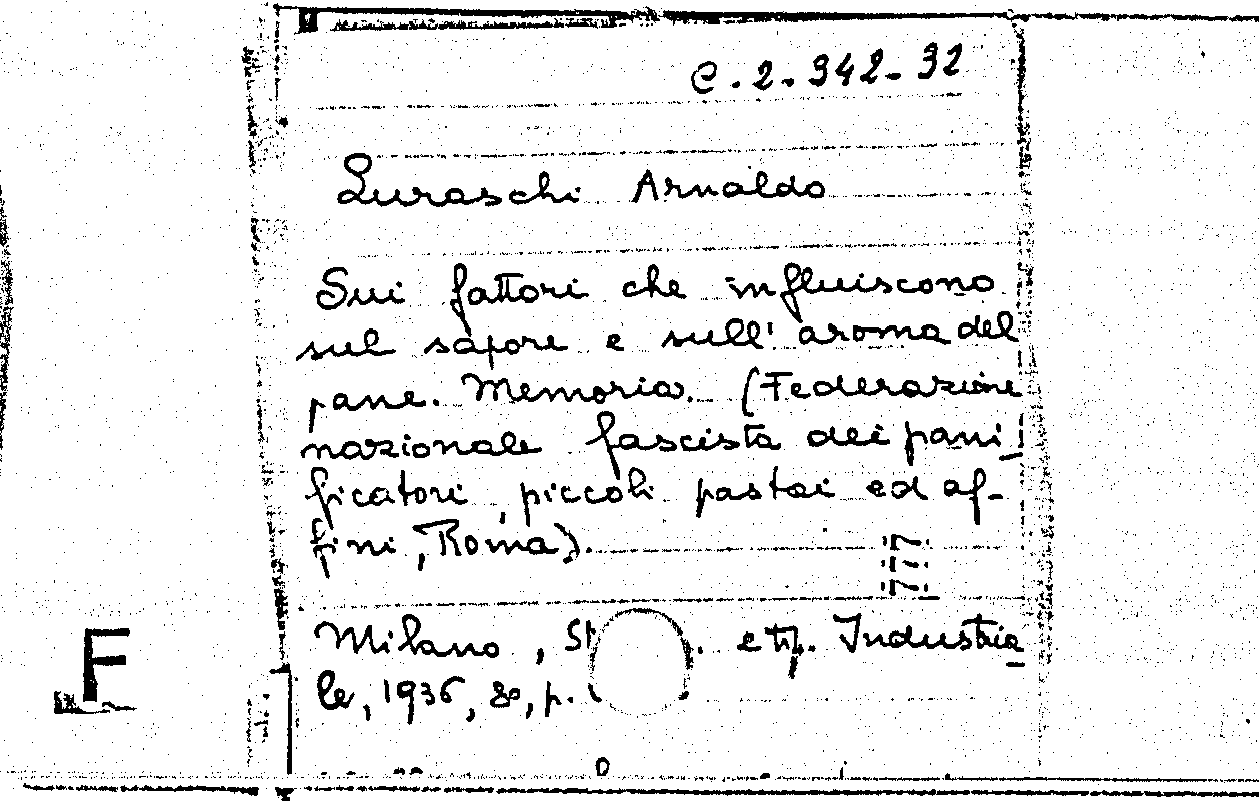 C.2-342-32
Luraschi Arnaldo
Sui fattori che influiscono
sul sapore e sull' aroma del
pane. Memoria. (Federazione
nazionale fascista dei pani
ficatori, piccoli pastai ed af-
fini, Roma).
777
Milano, St . e tip. Industria
le, 1936, 8°, p.
F